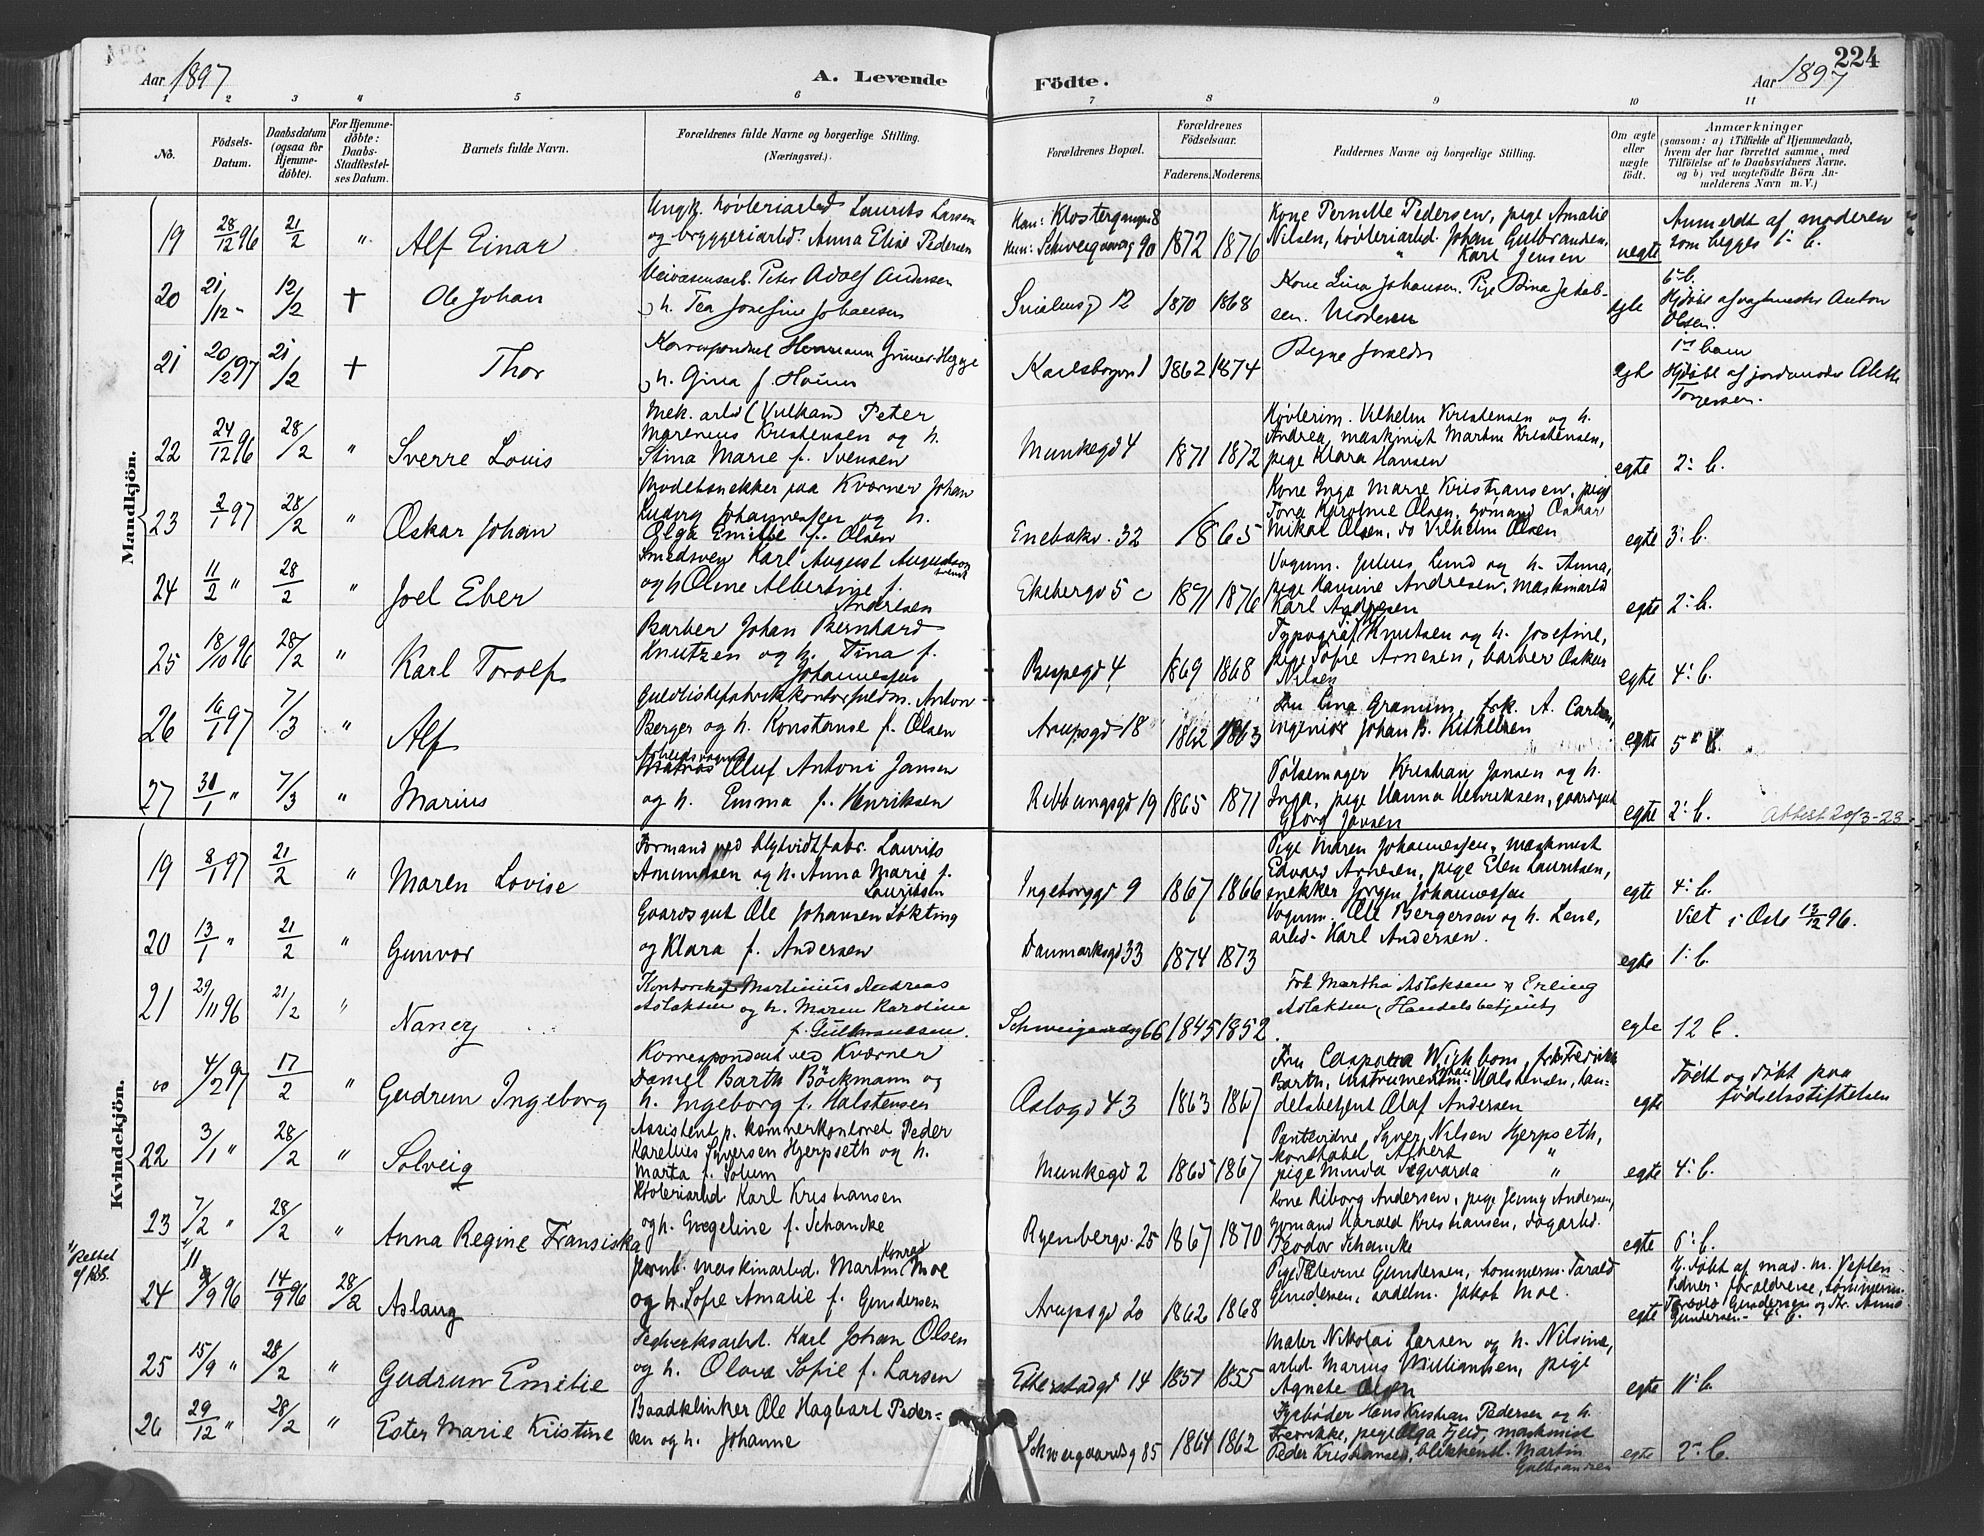 224
Aar 1897
A. Levende Födte.
Aar 1897
1 2 3 4 5 6 7 8 9 10 11
No. Födsels-Datum. Daabsdatum (ogsaa for Hjemmedöbte). For Hjemmedöbte: Daabs-Stadfæstelses Datum. Barnets fulde Navn. Forældrenes fulde Navne og borgerlige Stilling. (Næringsvei.) Forældrenes Bopæl. Forældrenes Födselsaar. Faderens. Moderens. Faddernes Navne og borgerlige Stilling. Om ægte eller uægte födt. Anmærkninger (saasom: a) i Tilfælde af Hjemmedaab, hvem der har forrettet samme, med Tilföielse af to Daabsvidners Navne, og b) ved uægtefödte Börn Anmelderens Navn m. V.)
Mandkjön.
19 28/12 96 21/2 " Alf Einar
Ungk. høvleriarbd Laurits Larsen
og bryggeriarbd. Anna Elise Pedersen
Han: Klostergangen 8
Hun: Schweigaardsg 90 1872 1876
Kone Pernille Pedersen, pige Amalie
Nilsen, høvleriarbd. Johan Gulbrandsen,
" Karl Jensen
uegte
Anmeldt af moderen
som begges 1' b.
20 21/12 " 12/2 + Ole Johan
Veivæsensarb. Peter Adolf Andersen
h. Tea Josefine Johansen
Smålensg 12 1870 1868
Kone Lina Johansen. Pige Dina Jakobsen. Moderen
egte
6' b.
Hjdøbt af vagtmester Anton
Olsen.
21 20/2 97 21/2 + Thor
Korrespondent Hermann Grimer Hegge
h. Gina f. Hoium
Karlsborgv 1 1862 1874
egte
1' barn
Hjdøbt af jordmoder Alette
Torgersen.
22 24/12 96 28/2 " Sverre Louis
Mek. arbd (Vulkan) Peter
Marenius Kristensen og h.
Stina Marie f. Svensen
Munkegd 4 1871 1872
Høvlerim. Vilhelm Kristensen og h.
Andrea, maskinist Martin Kristensen,
pige Klara Hansen
egte 2' b.
23 2/1 97 28/2 " Oskar Johan
Modelsnekker paa Kværner Johan
Ludvig Johannessen og h.
Olga Emilie f. Olsen
Enebakv. 32 1865
Kone Inga Marie Kristiansen, pige
Tora Karoline Olsen, sømand Oskar
Nikal Olsen, do Vilhelm Olsen
egte 3' b.
24 11/2 " 28/2 " Joel Eber
Smedsven Karl August Augustson
svensk
og h Oline Albertine f.
Andresen
Ekebergv 5 c 1871 1876
Vognm. Julius Lund og h. Anna,
pige Hansine Andresen, maskinarbd
Karl Andresen
egte 2' b.
25 18/10 96 28/2 " Karl Torolf
Barber Johan Bernhard
Knutzen og h. Tina f.
Johannessen
Bispegd 4 1869 1868
Typograf Knutsen og h. Josefine,
pige Sofie Arnesen, barber Oskar
Nilsen
egte 4' b.
26 16/1 97 7/3 " Alf
Guldlistefabrikkontorfuldm. Anton
Berger og h. Konstanse f. Olsen
Arupsgd 18 1862 1863
Fru Lina Gramm, frk. A. Carlsen,
ingeniør Johan B. Kithelsen
egte 5' b.
27 31/1 " 7/3 " Marius
Arbeidsvognm.
Oluf Antoni Jansen
og h. Emma f. Henriksen
Ribbungsgd 19 1865 1871
Pølsemager Kristian Jansen og h.
Inga, pige Hanna Henriksen, gaardsgut
Georg Jansen
egte 2' b. Attest 20/3-23
Kvindekjön.
19 8/1 97 21/2 " Maren Lovise
Formand ved blyhvidtfabr. Laurits
Amundsen og h. Anna Marie f.
Lauritsen
Ingeborggd 9 1867 1866
Pige Maren Johannessen, maskinist
Edvard Arnesen, pige Elen Lauritsen,
snekker Jørgen Johannessen
egte 4' b.
20 13/1 " 21/2 " Gunvor
Gaardsgut Ole Johansen Løkting
og Klara f. Andersen
Danmarksgd 33 1874 1873
Vognm. Ole Bergersen og h. Lene,
arbd. Karl Andersen.
egte
Viet i Oslo 13/12 96.
1' b.
21 29/11 96 21/2 " Nancy
Kontorchef Martinius Andreas
Aslaksen og h. Maren Karoline
f. Gulbrandsen.
Schweigaardsg 66 1845 1852.
Frk Martha Aslaksen & Erling
Aslaksen, Handelsbetjent
egte 12 b.
4/2 97 17/2 " Gudrun Ingeborg
Korrespondent ved Kværner
Daniel Barth Böckmann og
h. Ingeborg f. Halstensen
Oslogd 43 1863 1867
Fru Caspara Wighbom, frk Fredrikke
Barth, instrumentm. Halstensen, handelsbetjent Olaf Andersen
egte
Født og døbt paa
fødselsstiftelsen
22 3/1 " 28/2 " Solveig
Assistent p. kemnerkontoret Peder
Karelius Syversen Hjerpseth og h.
Marta f. Solum
Munkegd 2 1865 1867
Pantevidne Syver Nilsen Hjerpseth,
konstabel Albert "
pige Minda Sigvarda "
egte 4' b.
23 7/2 " 28/2 " Anna Regine Fransiska
Høvleriarbd Karl Kristiansen
og h. Gregeline f. Schancke
Ryenbergv. 25 1867 1870
Kone Riborg Andersen, pige Jenny Andersen,
sømand Harald Kristiansen, dagarbd.
Teodor Schancke
egte 6' b.
"Rettet
af Kbf.
24 11/9 96 14/9 96 28/2 Aslaug
Jernb. maskinarbd. Martin Konrad Moe
og h. Sofie Amalie f. Gundersen
Arupsgd 20 1862 1868
Pige Televine Gundersen, tømmerm. Tarald
Gundersen, sadelm. Jakob Moe.
egte
Hj. døbt af mad. M. Veflen
Vidner: forældrene, tømmerm.
Tarald Gundersen og Fr. Anna
Gundersen. 4' b.
25 15/9 " 28/2 " Gudrun Emelie
Teglverksarbd. Karl Johan Olsen
og h. Olava Sofie f. Larsen
Etterstadgd 14 1851 1855
Maler Nikolai Larsen og h. Nilsine,
arbd. Marius Williamsen, pige
Agnete Olsen
egte 11' b.
26 29/12 " 28/2 " Ester Marie Kristine
Baadklinker Ole Hagbart Pedersen og h. Johanne
Schweigaardsg 85 1864 1862
Fyrbøder Hans Kristian Pedersen og h.
Fredrikke, pige Olga Fjeld, maskinist
Peder Kristiansen, blikkensl. Martin
Gulbrandsen
egte 2' b.